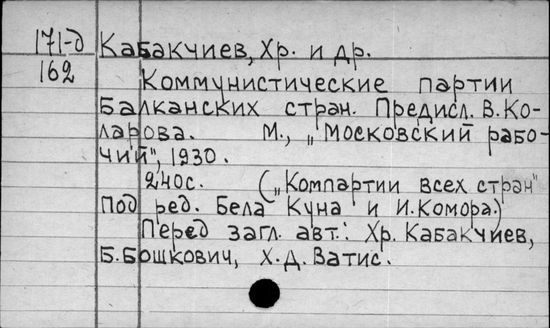 171-д Кабакчиев, Хр. и др.
162
Коммунистические партии
Балканских стран. Предисл. В. Ко-
ларова. М., „Московский рабо-
чий", 1930.
240с. („Компартии всех стран"
Под ред. Бела Куна и И. Комора.)
Перед загл. авт.: Хр. Кабакчиев,
Б. Бошкович, Х. Д. Ватис.